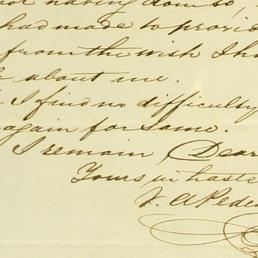 not having done so,
had made to provid
from the wish I ha
about me.
I find no difficulty
again for some.
I remain, Dear
Yours in haste